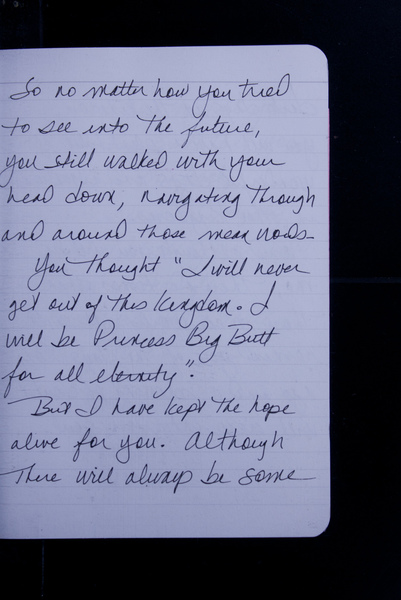 So no matter how you tried
to see into the future,
you still walked with your
head down, navigating through
and around those mean words.
You thought "I will never
get out of this kingdom. I
will be Princess Big Butt
for all eternity".
But I have kept the hope
alive for you. Although
there will always be some